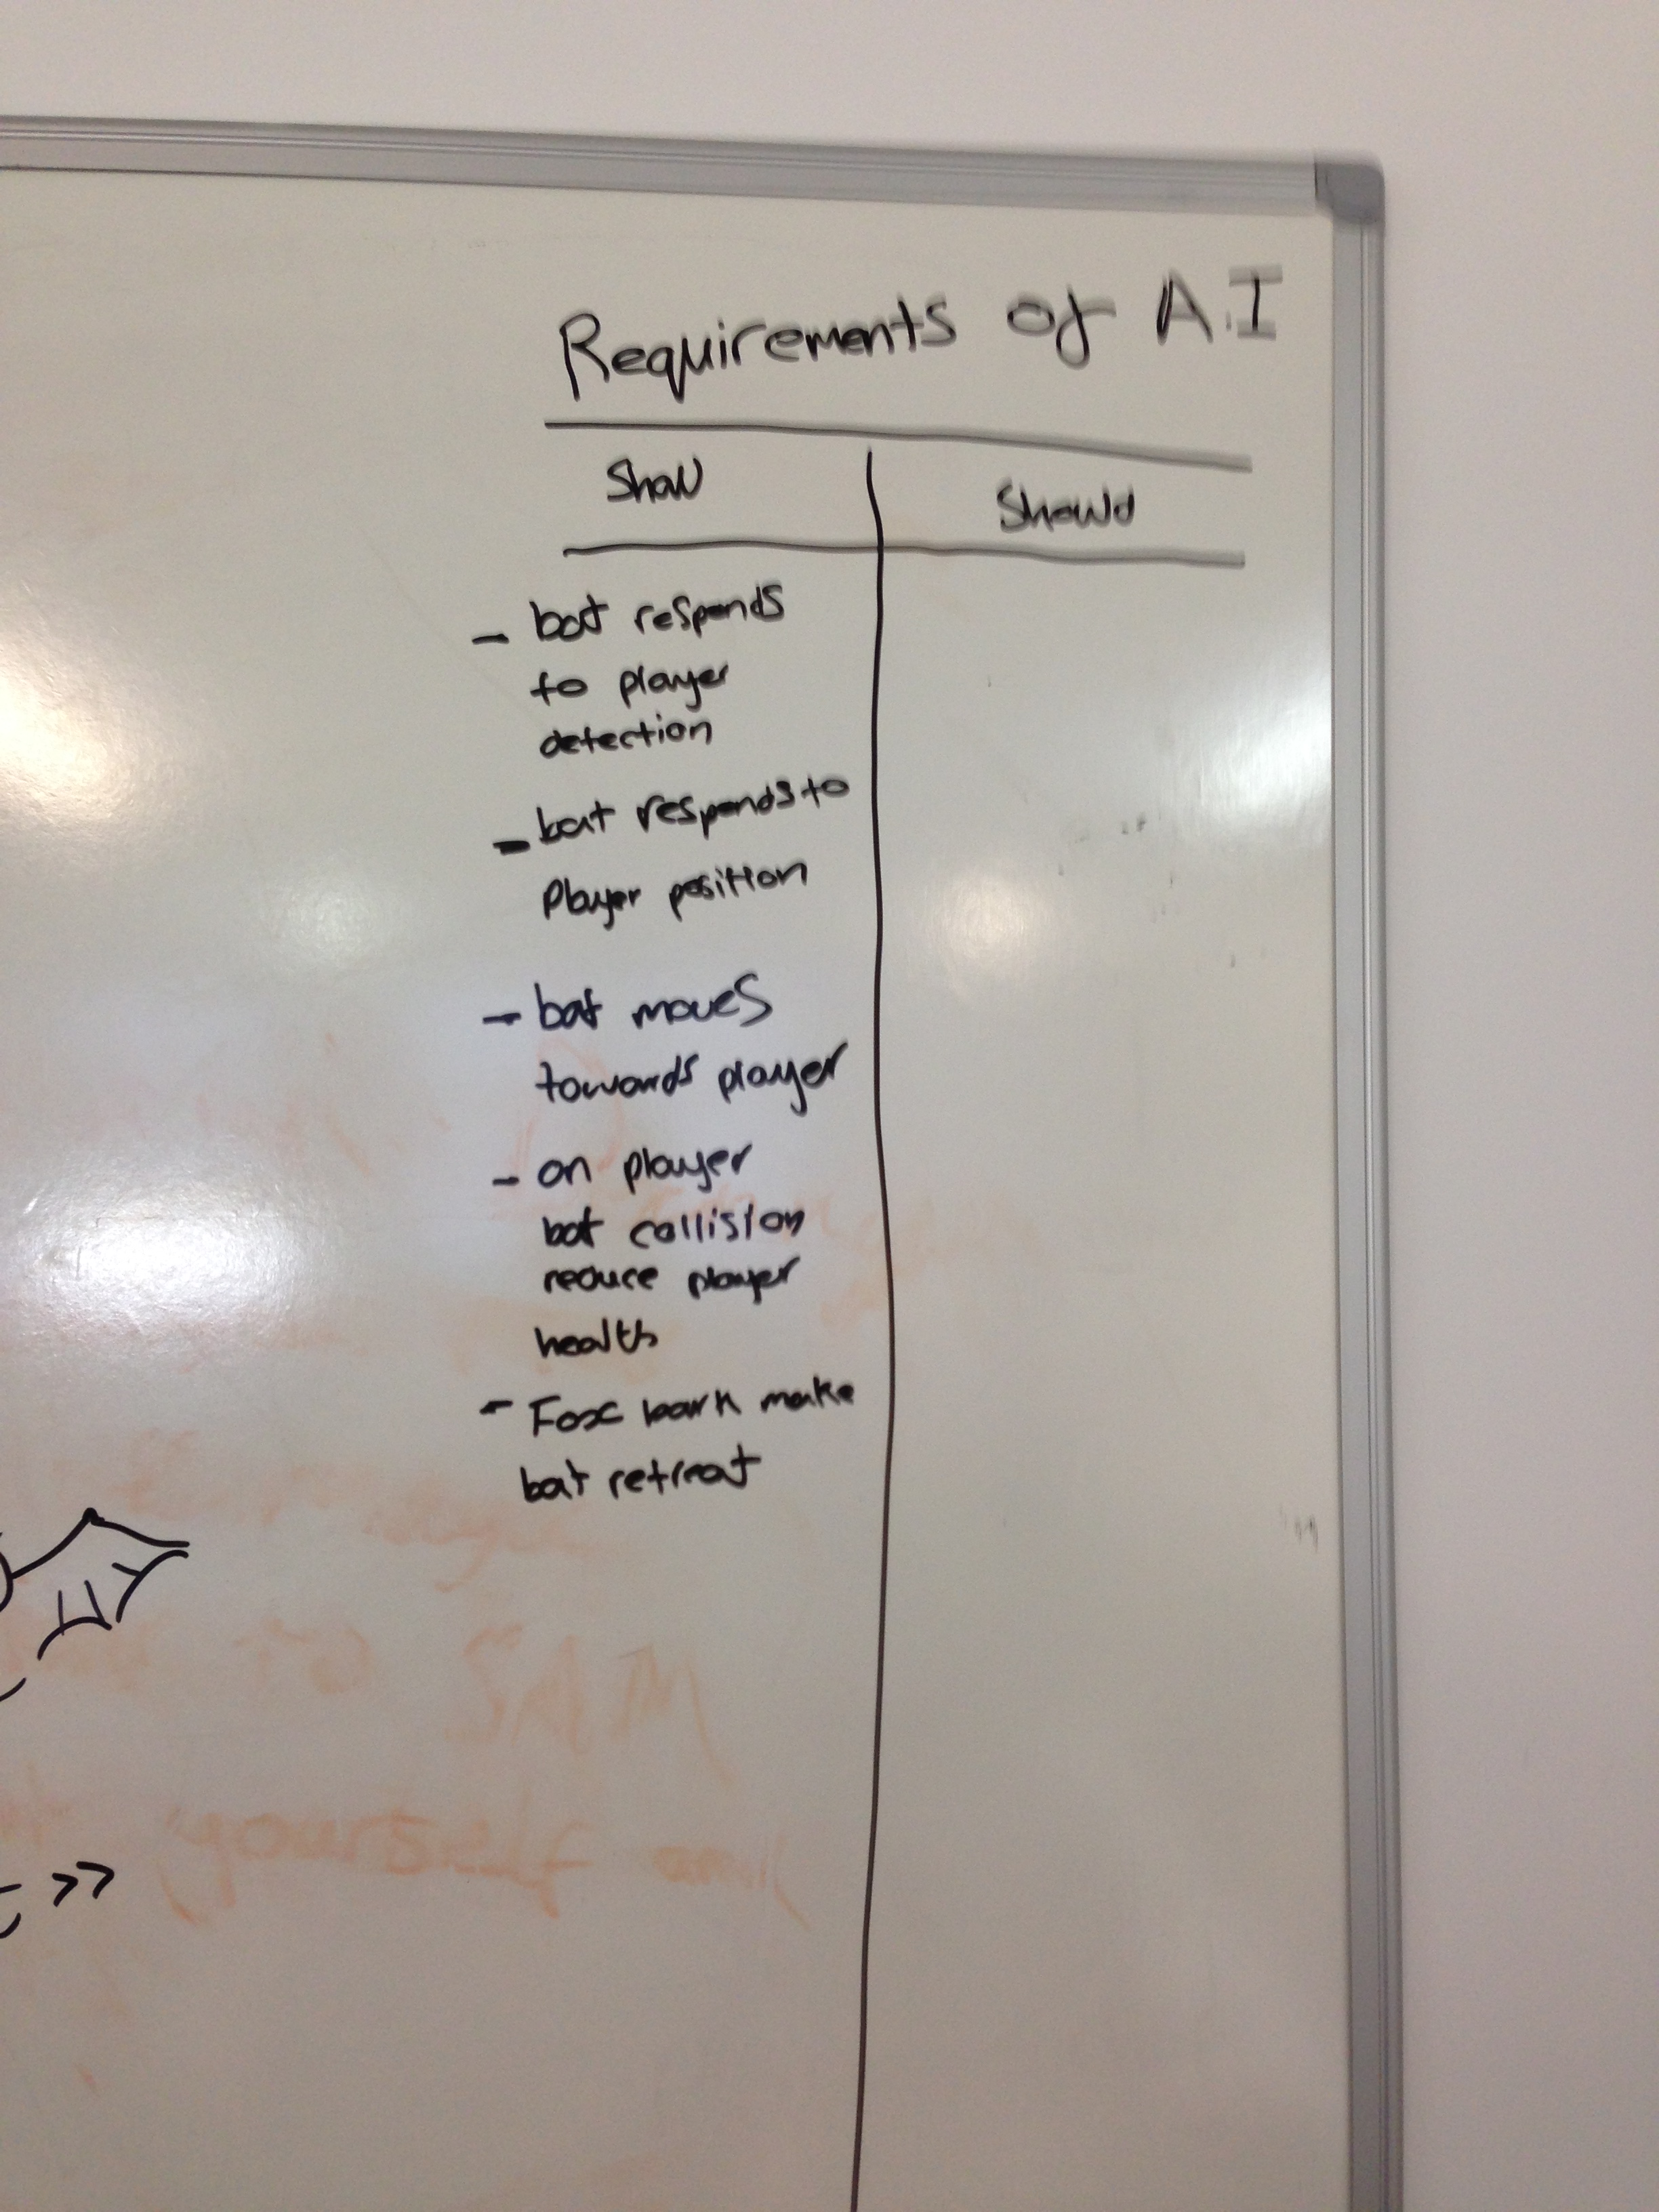 Requirements of A.I
Shall
Should
- bat responds
to player
detection
- bat responds to
Player position
- bat moves
towards player
- on player
bat collision
reduce player
health
- Fox bark make
bat retreat
>>